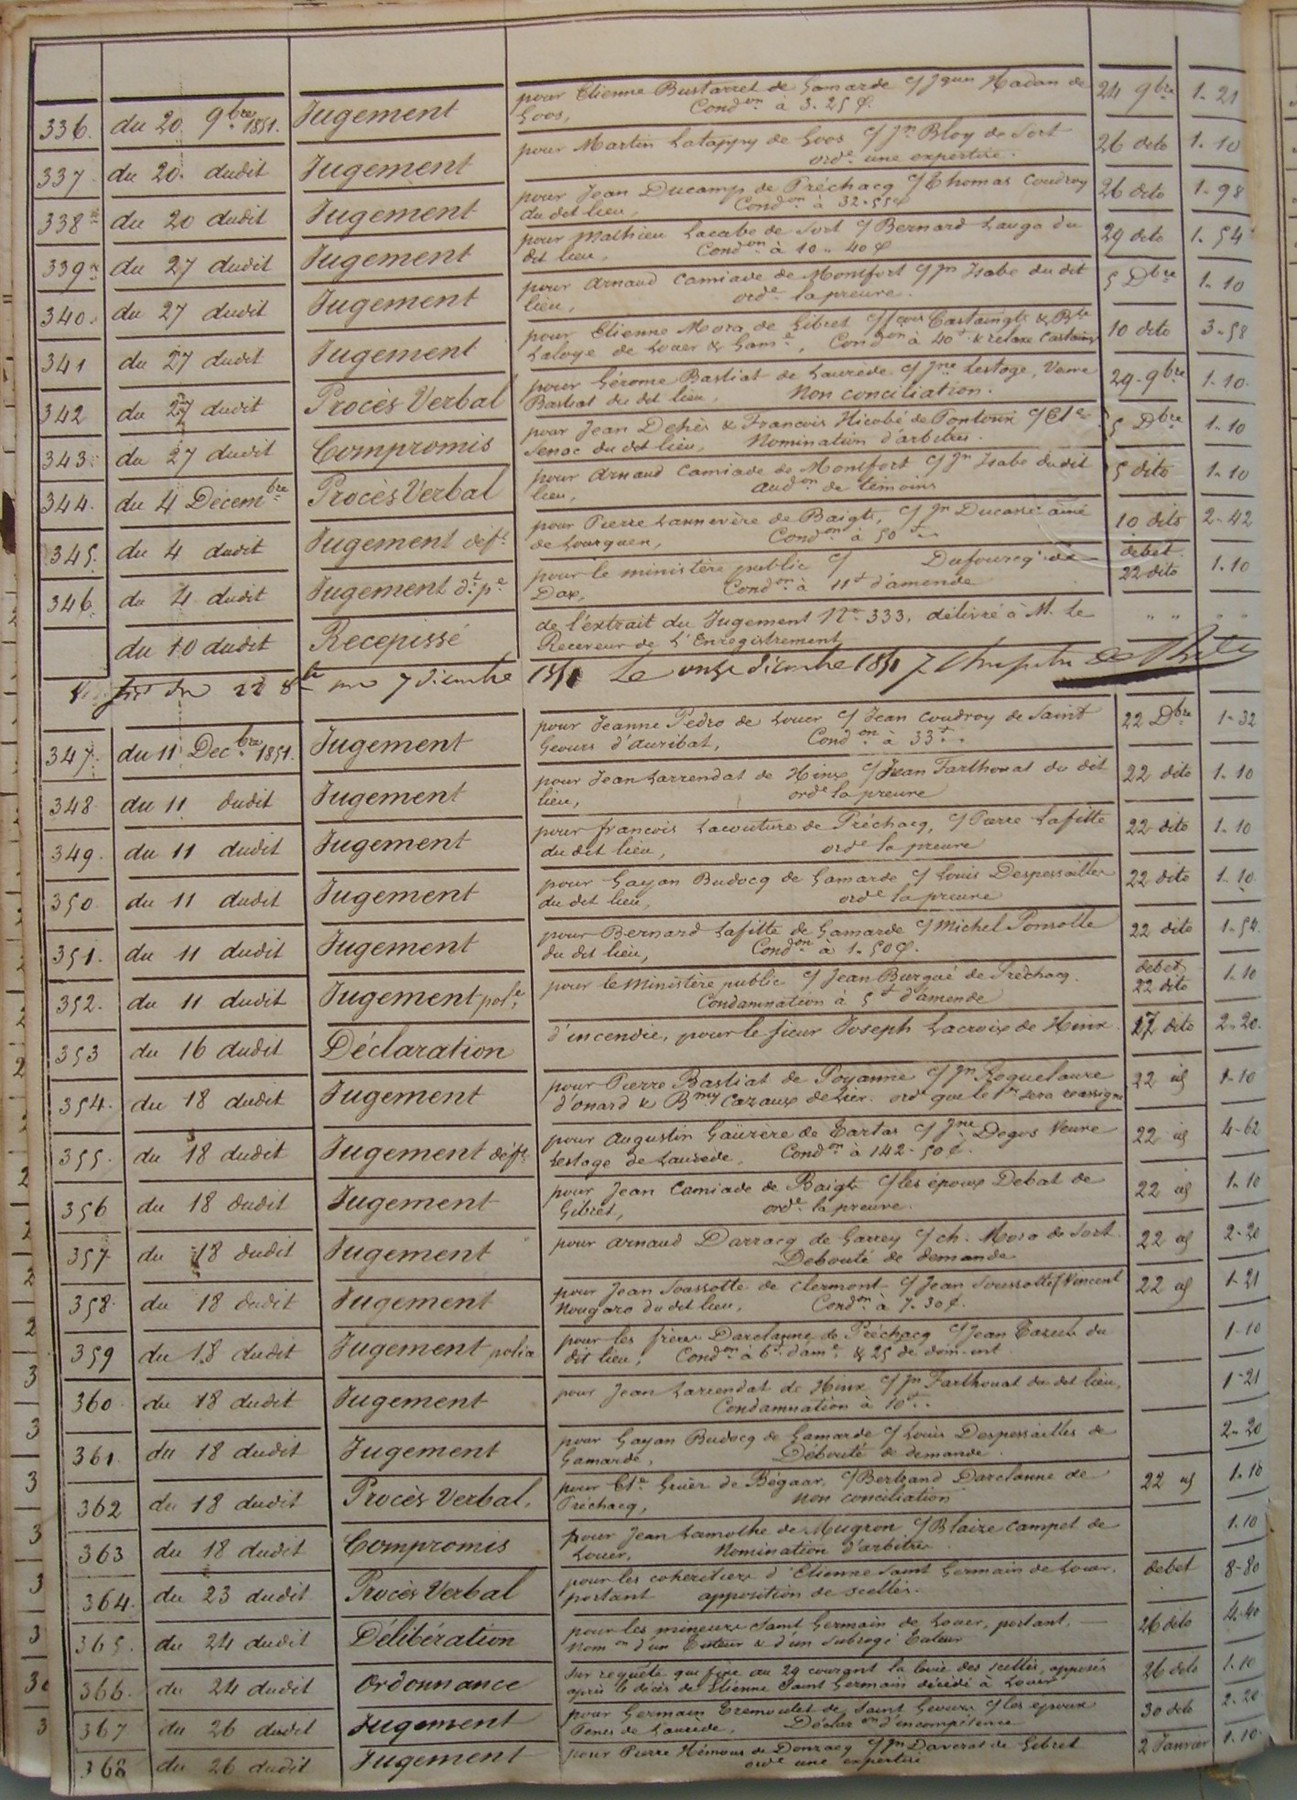 336. du 20 9bre 1851. Jugement pour Etienne Bustarret de Gamarde c/ Jques Nadau de 24 9bre 1-21
Goos, Condon à 3-25 c.
337 du 20 dudit Jugement pour Martin Latappy de Goos c/ Jn Bloy de Sort 26 dito 1-10
orde une expertise.
338 du 20 dudit Jugement pour Jean Ducamp de Préchacq c/ Thomas Coudroy 26 dito 1-98
du dit lieu, Condon à 32-55 c
339 du 27 dudit Jugement pour Mathieu Lacabe de Sort c/ Bernard Lauga du 29 dito 1-54
dit lieu, Condon à 10-40 c
340. du 27 dudit Jugement pour Arnaud Camiade de Montfort c/ Jn Isabe du dit 5 Dbre 1-10
lieu, orde la preuve.
341 du 27 dudit Jugement pour Etienne Mora de Gibret c/ fçois Castaingts & Bte 10 dito 3-58
Laloye de Louer & Game, Condon à 40f & relaxe Castaings
342 du 27 dudit Procès Verbal pour Gérome Bastiat de Laurède c/ Jne Lestage, Veuve 29-9bre 1-10
Bastiat du dit lieu, Non conciliation.
343. du 27 dudit Compromis pour Jean Dehès & Francois Nicobé de Pontoux c/ Cte 5 Dbre 1-10
Senac du dit lieu, Nomination d'arbitres.
344. du 4 Décembre Procès Verbal pour Arnaud Camiade de Montfort c/ Jn Isabe du dit 5 dito 1-10
lieu, audon de témoins
345. du 4 dudit Jugement déft pour Pierre Lannevère de Baigts, c/ Jn Ducassé ainé 10 dito 2-42
de Lourquen, Condon à 50f
346 du 4 dudit Jugement dt pe pour le ministère public c/ Dufourcq de debet 22 dito 1-10
Dax, Condon à 11f d'amende
du 10 dudit Recepissé de l'extrait du Jugement No 333, délivré à M. le " " " "
Receveur de L'Enregistrement
du 22 8bre au 7 décembre 1851 Le onze décembre 1851
347. du 11 Decbre 1851. Jugement pour Jeanne Pedro de Louer c/ Jean Coudroy de Saint 22 Dbre 1-32
Geours d'auribat, Condon à 33f.
348 du 11 dudit Jugement pour Jean Larrendat de Hinx c/ Jean Farthouat du dit 22 dito 1-10
lieu, orde la preuve
349. du 11 dudit Jugement pour francois Lacouture de Préchacq, c/ Pierre Lafitte 22 dito 1-10
du dit lieu, orde la preuve
350 du 11 dudit Jugement pour Gayan Budocq de Gamarde c/ Louis Despessailles 22 dito 1-10
du dit lieu, orde la preuve
351. du 11 dudit Jugement pour Bernard Lafitte de Gamarde c/ Michel Ponsolle 22 dito 1-54
du dit lieu, Condon à 1-50 c.
352. du 11 dudit Jugement pole, pour le Ministère public c/ Jean Burgué de Préchacq. debet 22 dito 1-10
Condamnation à 5f d'amende
353 du 16 dudit Déclaration d'incendie, pour le sieur Joseph Lacroix de Hinx. 17 dito 2-20.
354. du 18 dudit Jugement pour Pierre Bastiat de Poyanne c/ Jn Roquelaure 22 id 1-10
d'onard & Bmy Cazaux de Lier. orde que le 1er sera reassigné
355. du 18 dudit Jugement déft pour Augustin Gaüzère de Tartas c/ Jne Degos Veuve 22 id 4-62
Lestage de Laurède, Condon à 142-50 c.
356 du 18 dudit Jugement pour Jean Camiade de Baigts c/ les époux Debat de 22 id 1-10
Gibret, orde la preuve.
357 du 18 dudit Jugement pour Arnaud Darracq de Garrey c/ ch. Mora de Sort. 22 id 2-20
Débouté de demande
358. du 18 dudit Jugement pour Jean Soussotte de Clermont c/ Jean Soussotte / Vincent 22 id 1-21
Nougaro du dit lieu, Condon à 7-30 c.
359 du 18 dudit Jugement police pour les frères Darclanne de Préchacq c/ Jean Cazeils du 1-10
dit lieu, Condon à 6f d'ame & 25 de dom-int
360. du 18 dudit Jugement pour Jean Larrendat de Hinx c/ Jn Farthouat du dit lieu, 1-21
Condamnation à 10f.
361. du 18 dudit Jugement pour Gayan Budocq de Gamarde c/ Louis Despessailles de 2-20
Gamarde, Débouté de demande.
362 du 18 dudit Procès Verbal, pour Cte Gruër de Bégaar, c/ Bertrand Darclanne de 22 id 1-10
Préchacq, Non conciliation
363 du 18 dudit Compromis pour Jean Lamothe de Mugron c/ Blaize Campet de 1-10
Louer, Nomination d'arbitres
364. du 23 dudit Procès Verbal pour les coheritiers d'Etienne Saint Germain de Louer, debet 8-80
portant apposition de scellés.
365. du 24 dudit Délibération pour les mineurs Saint Germain de Louer, portant, 26 dito 4-40
Nomon d'un Tuteur & d'un subrogé Tuteur
366. du 24 dudit Ordonnance sur requête que fixe au 29 courant la levée des scellés, apposés 26 dito 1-10
après le décès de Etienne Saint Germain décédé à Louer
367 du 26 dudit Jugement pour Germain Tremoulet de Saint Geours c/ les époux 30 dito 2-20
de Laurede, Déclaron d'incompétence
368 du 26 dudit Jugement pour Pierre Hémous de Donzacq c/ Jn Daverat de Gibret 2 Janvier 1-10
orde une expertise